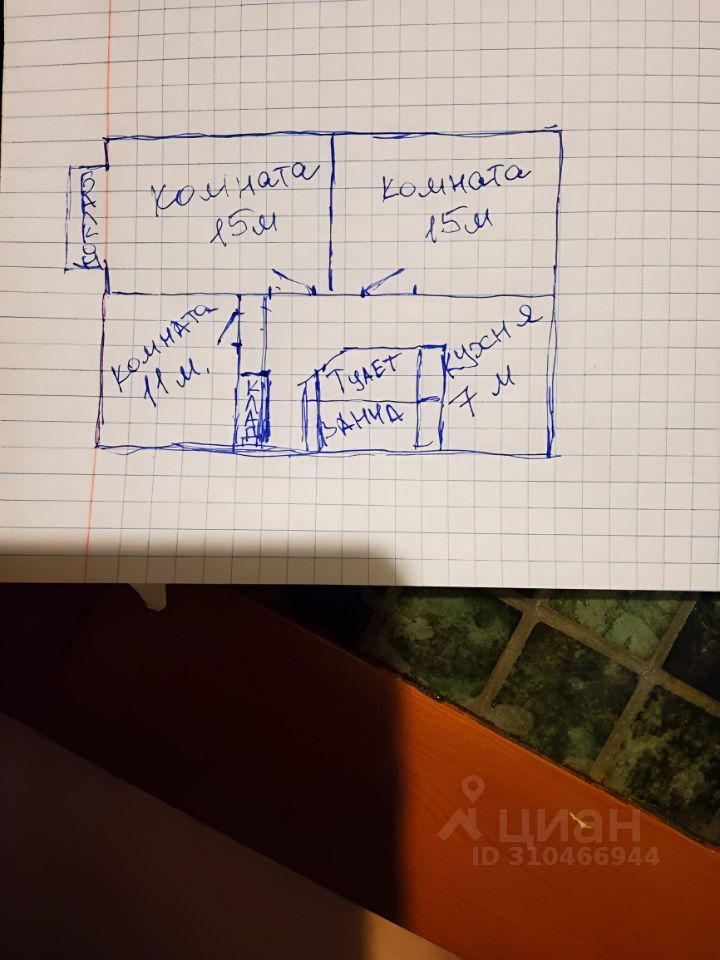 комната
15м
комната
15м
БАЛКОН
комната
11 м.
КЛАД
ТУЛЕТ
ВАННА
кухня
7 м
циан
ID 310466944